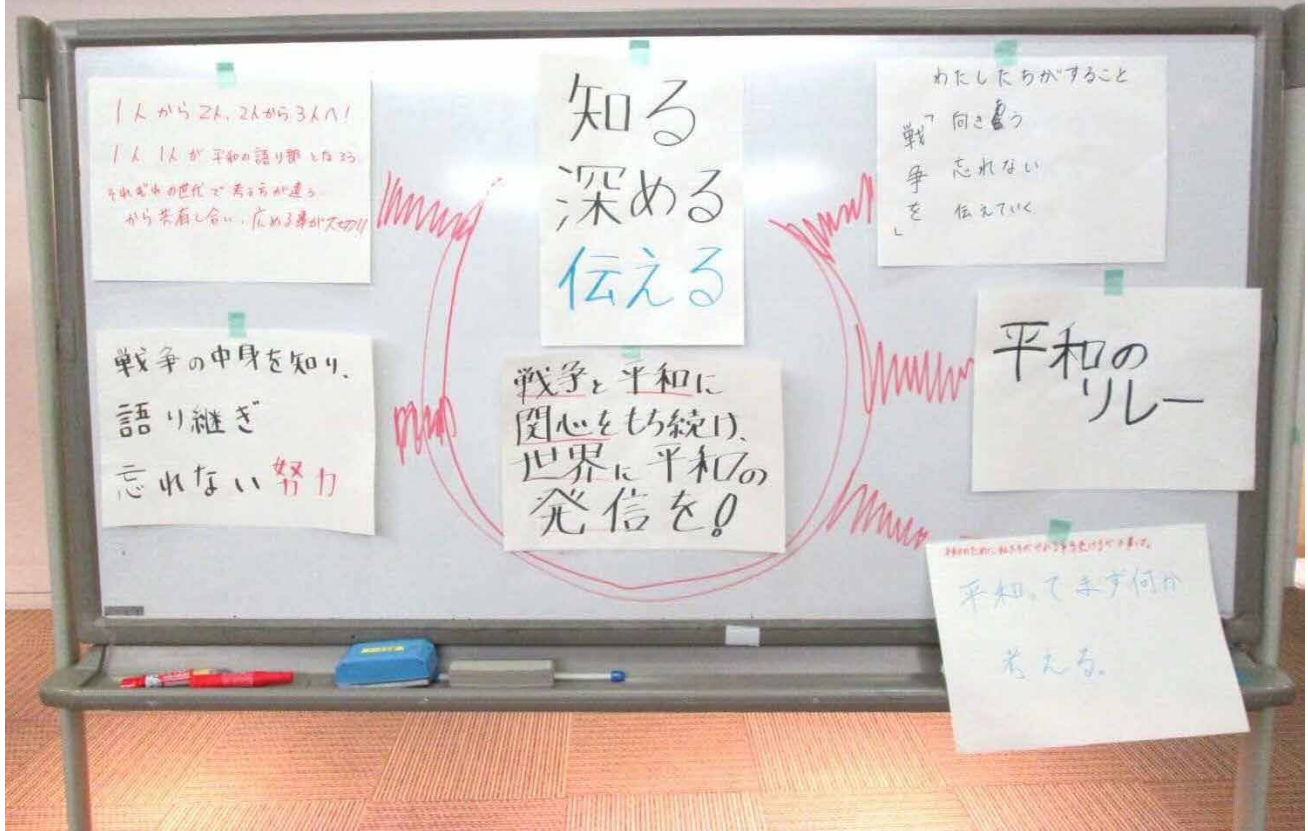 1人から2人、2人から3人へ!
1人1人が平和の語り部となろう
それぞれの世代で考え方が違う
から共有し合い、広める事が大切!!
戦争の中身を知り、
語り継ぎ
忘れない努力
知る
深める
伝える
戦争と平和に
関心をもち続け、
世界に平和の
発信を!
わたしたちがすること
「戦争を」
向き合う
忘れない
伝えていく
平和の
リレー
平和って まず何か
考える。